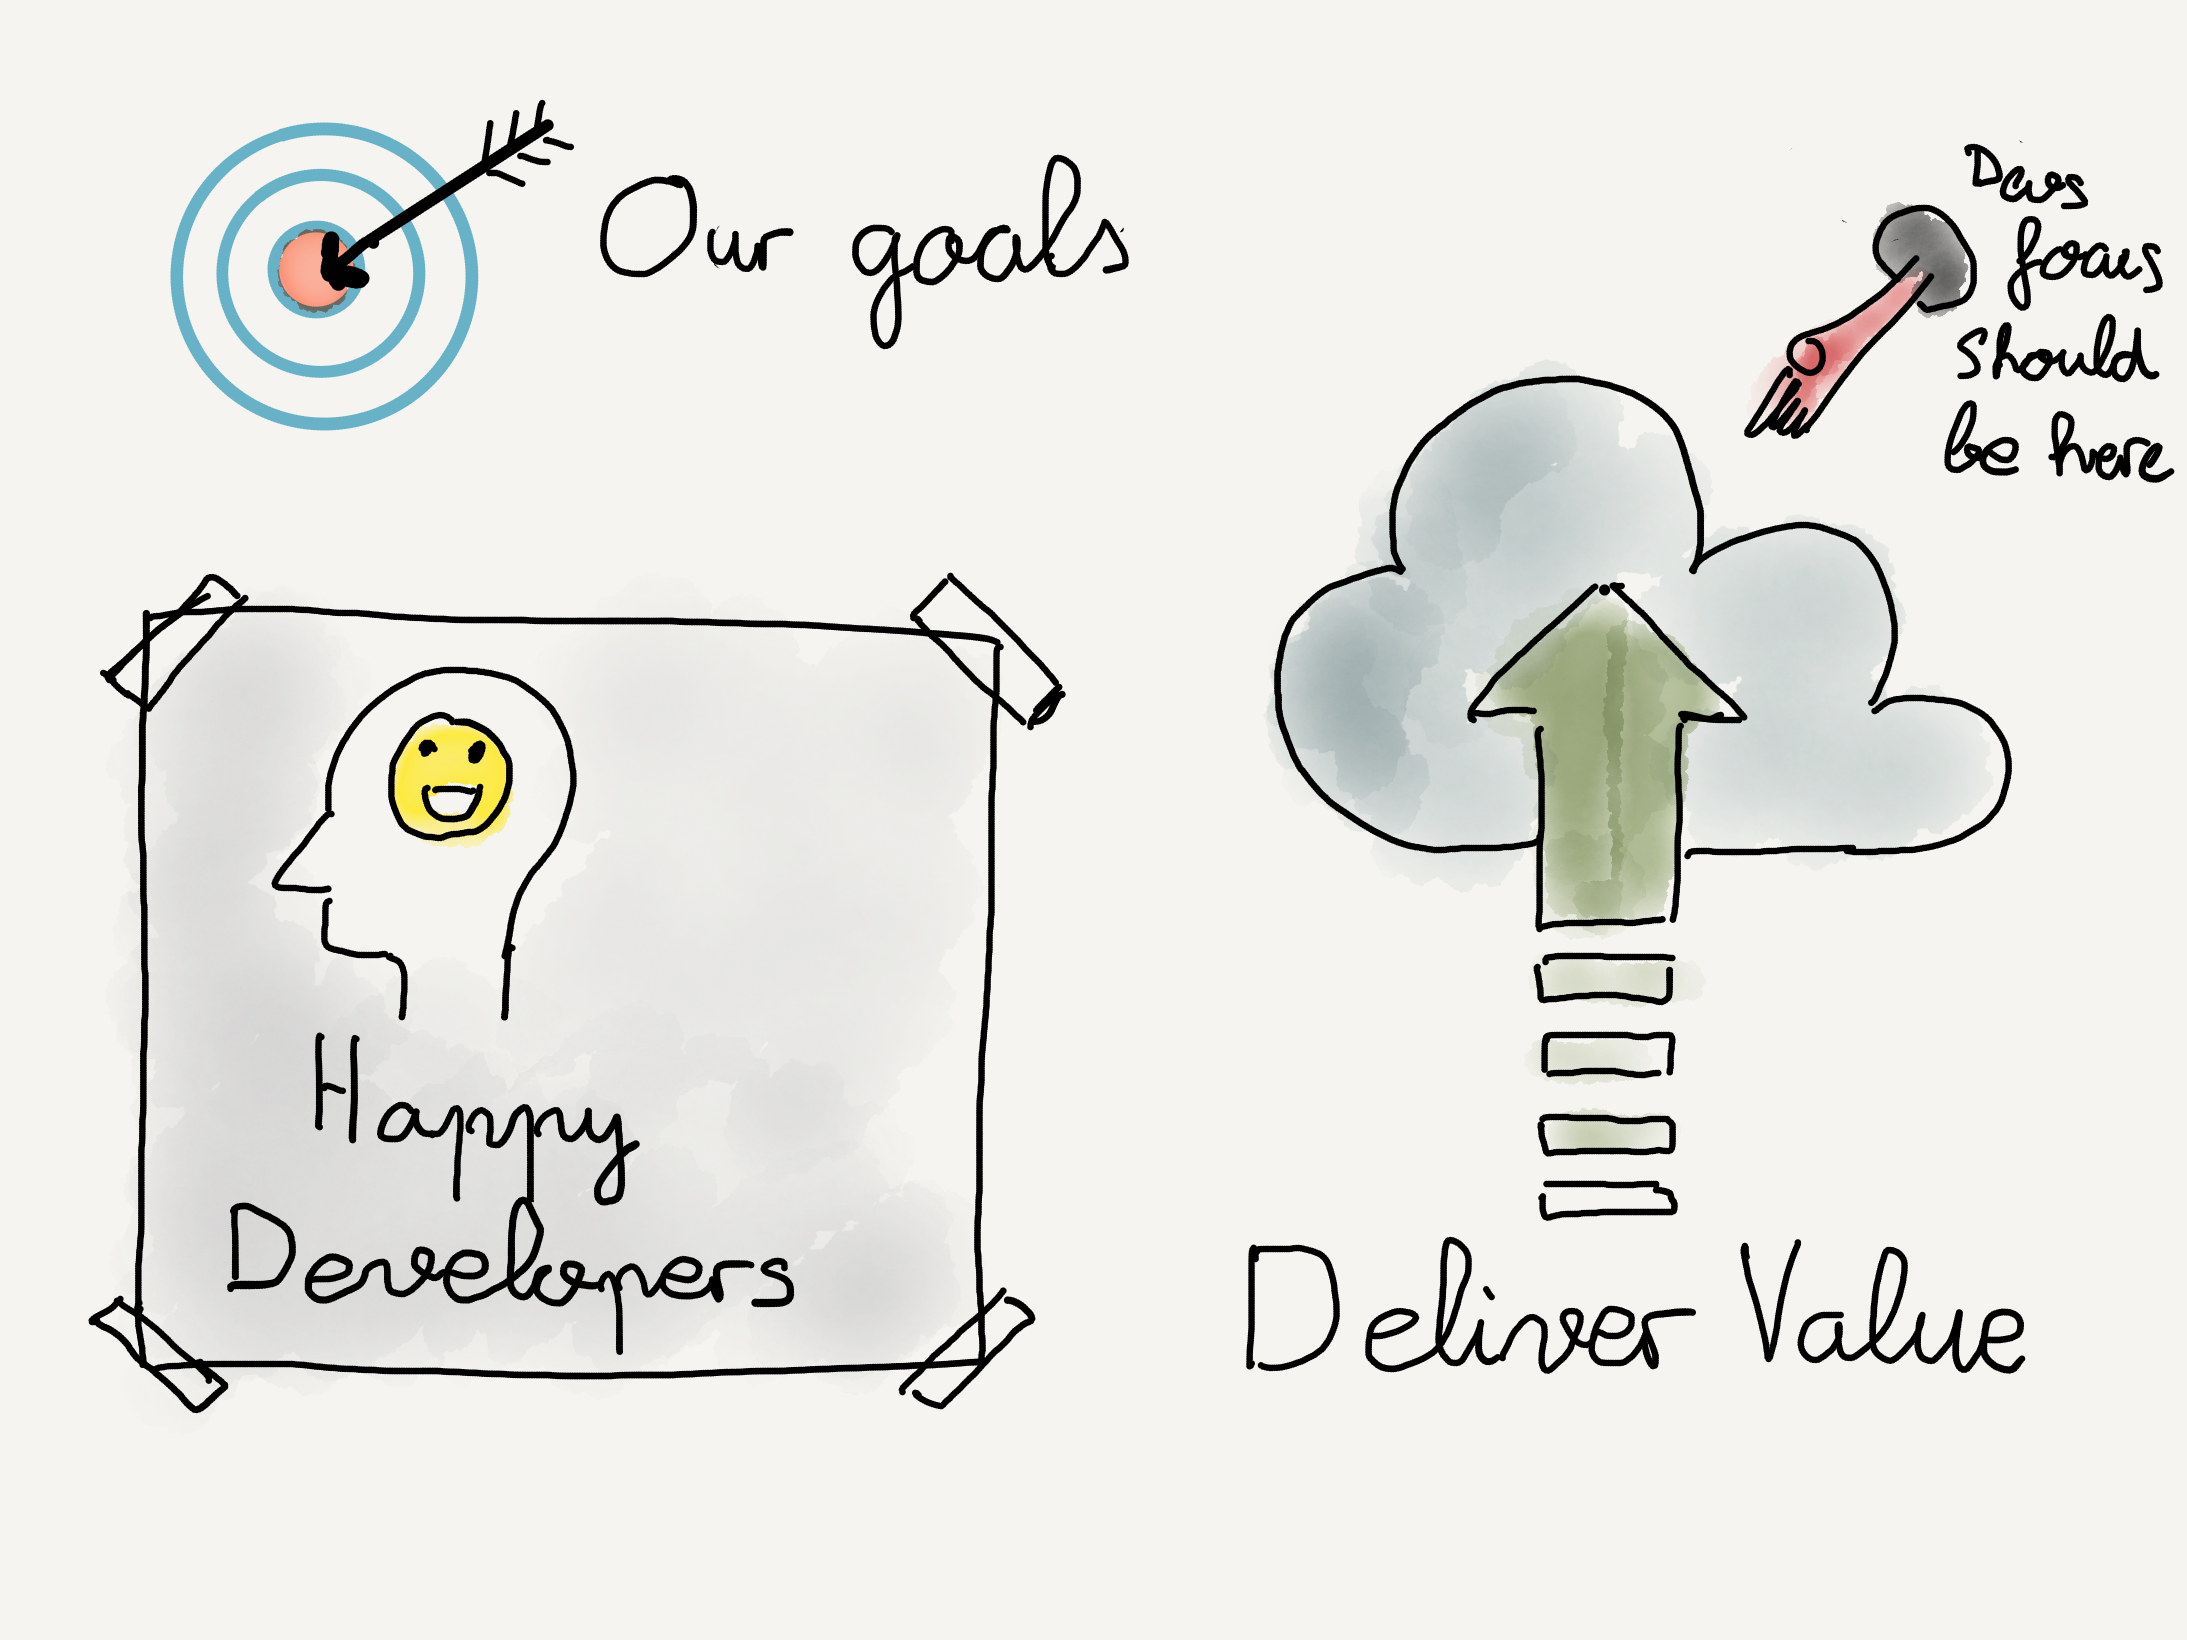 Our goals
Devs
focus
should
be here
Happy
Developers
Deliver Value